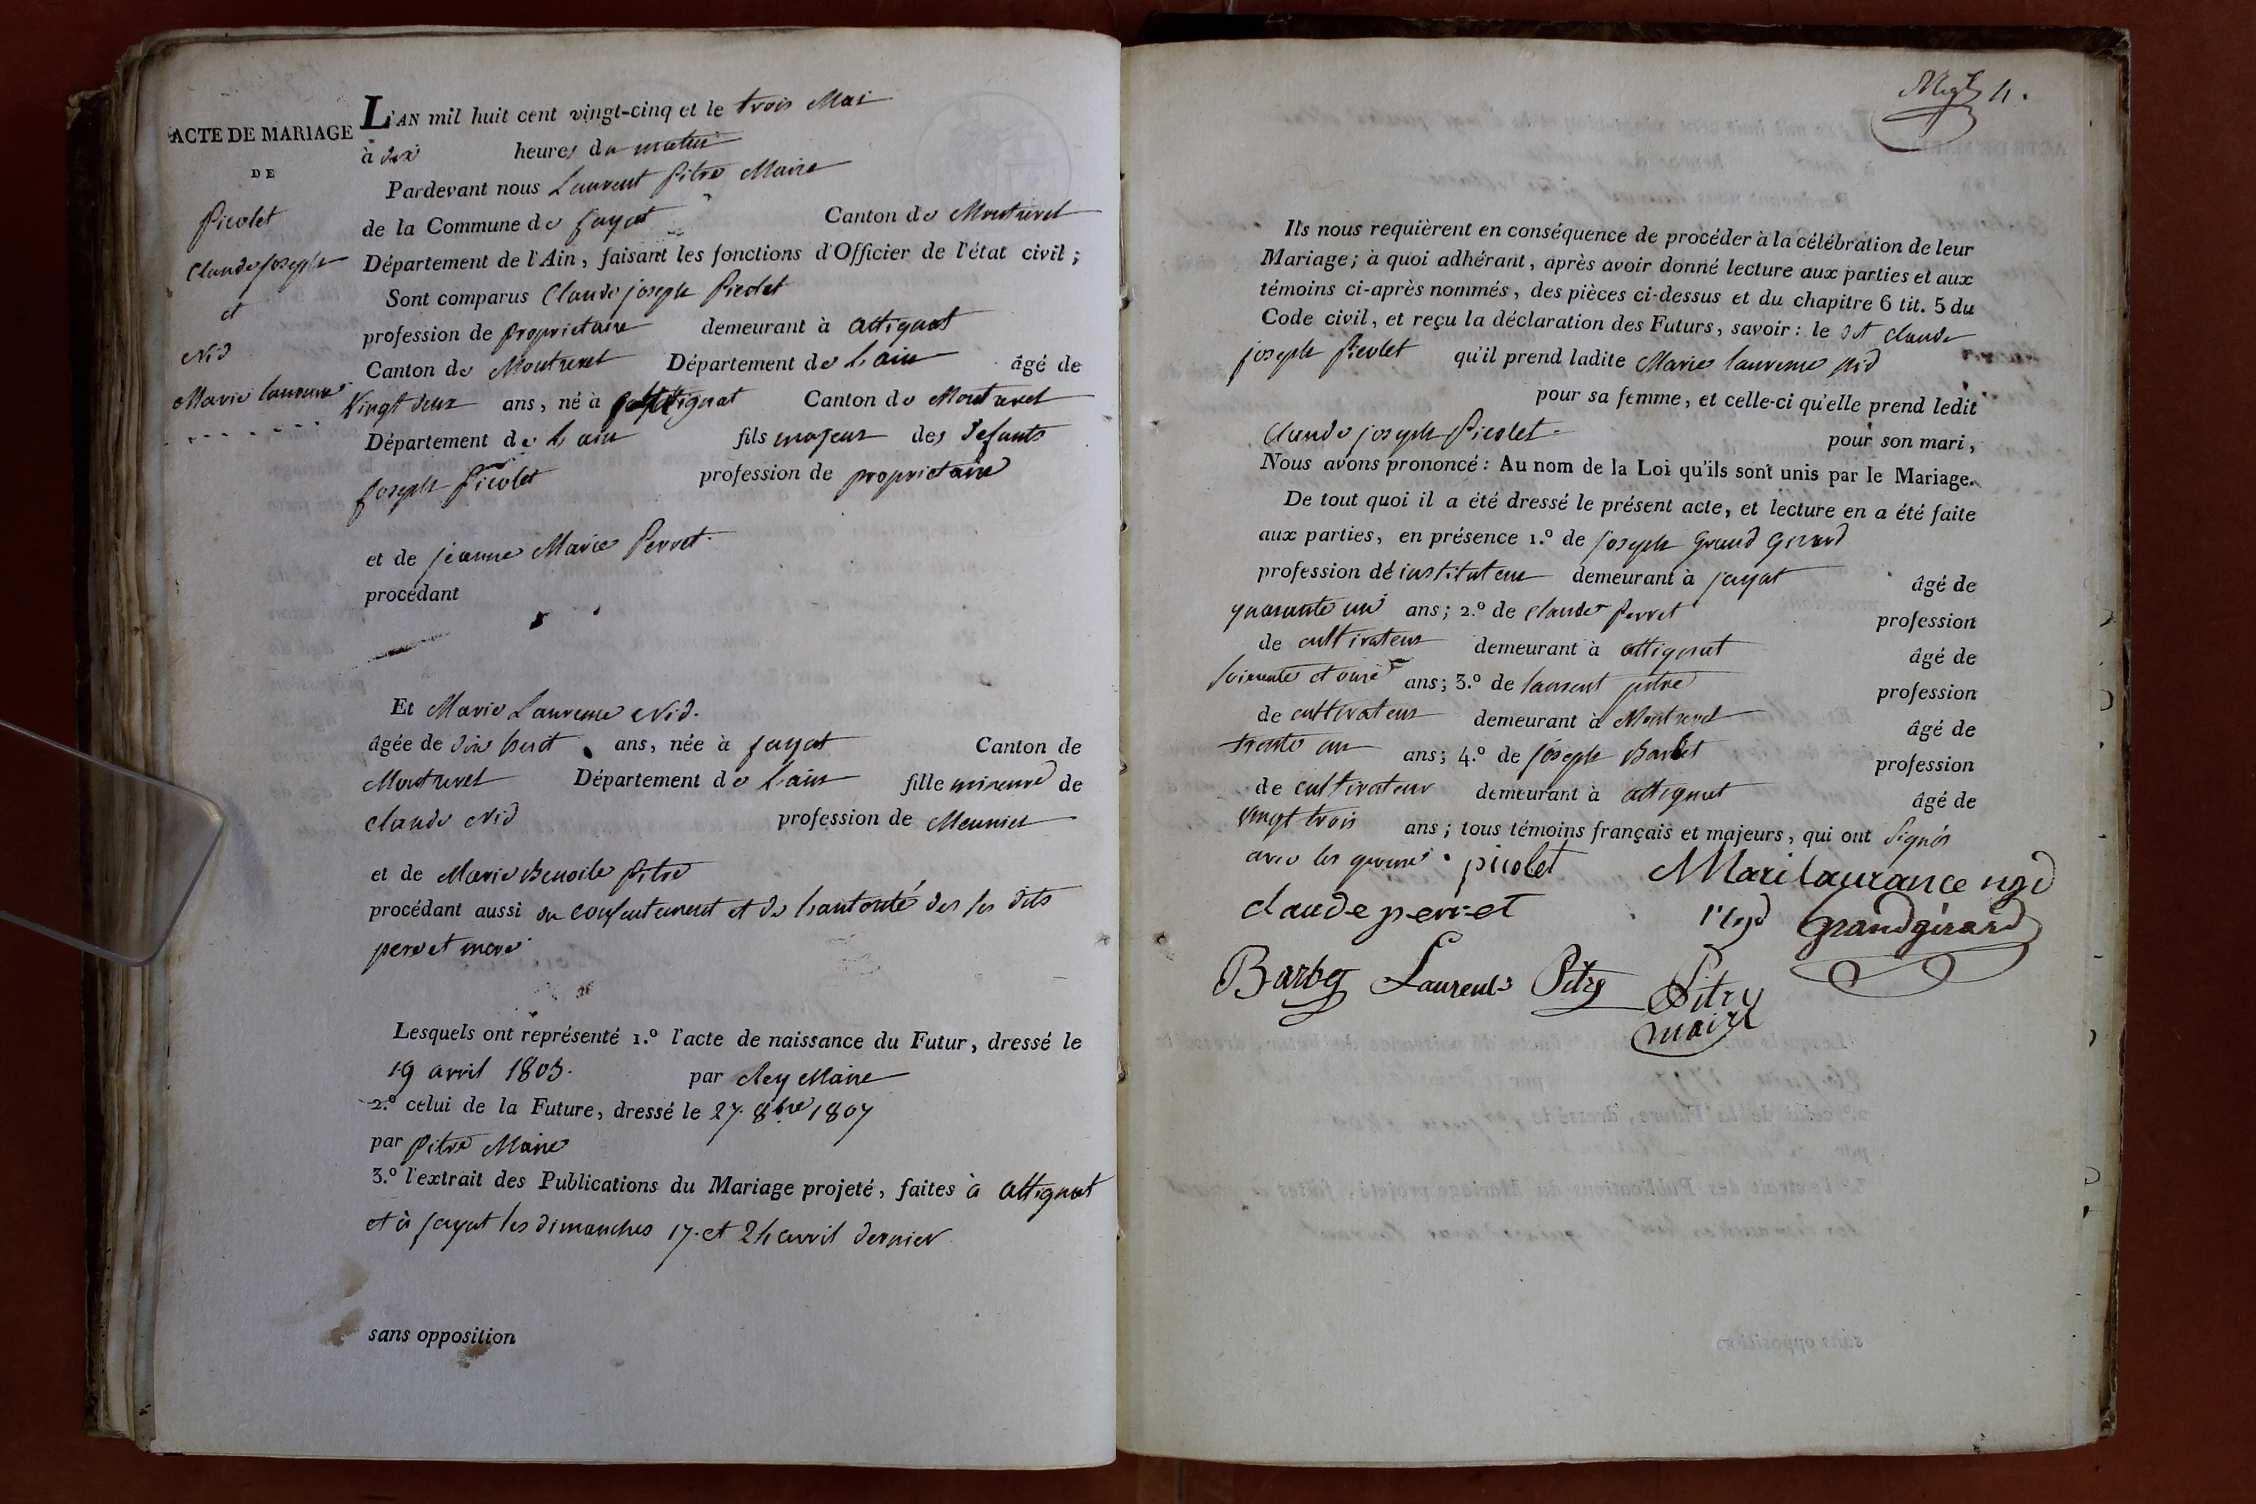 ACTE DE MARIAGE
DE
Picolet
Claude Joseph
et
Nid
Marie Laurence
L'AN mil huit cent vingt-cinq et le trois Mai
à dix heures du matin
Pardevant nous Laurent Pitre Maire
de la Commune de Jayat Canton de Montrevel
Département de l'Ain, faisant les fonctions d'Officier de l'état civil ;
Sont comparus Claude joseph Picolet
profession de proprietaire demeurant à attignat
Canton de Montrevel Département de L'ain âgé de
Vingt deux ans, né à attignat Canton de Montrevel
Département de L'ain fils majeur des defunts
Joseph Picolet profession de proprietaire
et de jeanne Marie Perret.
procédant
Et Marie Laurence Nid.
âgée de dix huit ans, née à Jayat Canton de
Montrevel Département de L'ain fille mineure de
Claude Nid profession de Meunier
et de Marie Benoite Pitre
procédant aussi du consentement et de L'autorité des ses dits
pere et mere
Lesquels ont représenté 1.º l'acte de naissance du Futur, dressé le
19 avril 1803. par Rey Maire
2.º celui de la Future, dressé le 27. 8bre 1807
par Pitre Maire
3.º l'extrait des Publications du Mariage projeté, faites à attignat
et à Jayat les dimanches 17. et 24 avril dernier
sans opposition
4.
Ils nous requièrent en conséquence de procéder à la célébration de leur
Mariage; à quoi adhérant, après avoir donné lecture aux parties et aux
témoins ci-après nommés, des pièces ci-dessus et du chapitre 6 tit. 5 du
Code civil, et reçu la déclaration des Futurs, savoir : le dit Claude
joseph Picolet qu'il prend ladite Marie laurence Nid
pour sa femme, et celle-ci qu'elle prend ledit
Claude joseph Picolet. pour son mari,
Nous avons prononcé : Au nom de la Loi qu'ils sont unis par le Mariage.
De tout quoi il a été dressé le présent acte, et lecture en a été faite
aux parties, en présence 1.º de Joseph Grand Girard
profession de instituteur demeurant à jayat âgé de
quarante un ans; 2.º de Claude Perret profession
de cultivateur demeurant à attignat âgé de
soixante et onze ans; 3.º de laurent pitre profession
de cultivateur demeurant à Montrevel âgé de
trente un ans; 4.º de joseph Barbet profession
de cultivateur demeurant à attignat âgé de
vingt trois ans ; tous témoins français et majeurs, qui ont signés
avec les picolet Mari laurance nyd
claude perret nyd Grandgirard
Barbet Laurent Pitre Pitre
maire